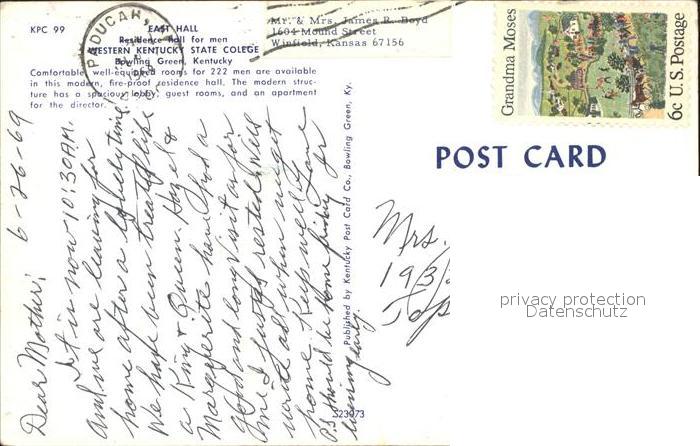 KPC 99
EAST HALL
Residence hall for men
WESTERN KENTUCKY STATE COLEGE
Bowling Green, Kentucky
Comfortable well-equipped rooms for 222 men are available
in this modern, fire-proof residence hall. The modern struc-
ture has a spacious lobby, guest rooms, and an apartment
for the director.
PADUCAH,
Mr. & Mrs. James R. Boyd
1604 Mound Street
Winfield, Kansas 67156
Grandma Moses
6c U.S. Postage
POST CARD
6-26-69
Dear Mother;
It is now 10:30 AM.
and we are leaving for
home after a lovely time
We have been treated like
a King & Queen. Hazel &
Marguerite have had a
Good and long visit as for
me I just rested. Will
write all when we get
home. Keep well. Love
P.S. should be home friday
evening early.
Published by Kentucky Post Card Co., Bowling Green, Ky.
S23073
Mrs.
193
Top
privacy protection
Datenschutz